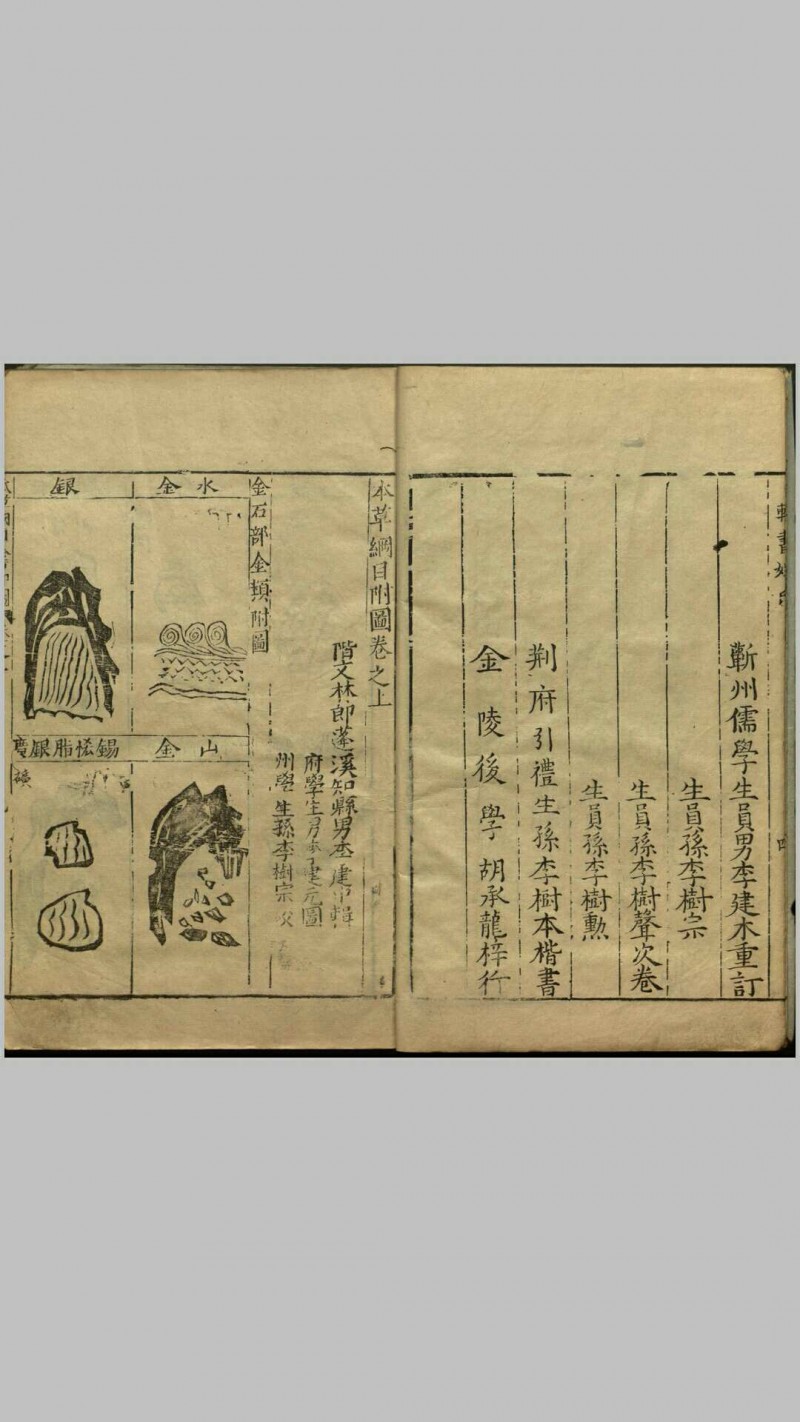 輯書姓氏
蘄州儒學生員男李建木重訂
生員孫李樹宗
生員孫李樹聲次卷
生員孫李樹勲
荆府引禮生孫李樹本楷書
金陵後學胡承龍梓行
本草綱目附圖卷之上
階文林郎蓬溪知縣男李建中輯
府學生男李建元圖
州學生孫李樹宗校
金石部金類附圖
金水
金山
銀
錫恡脂銀礦